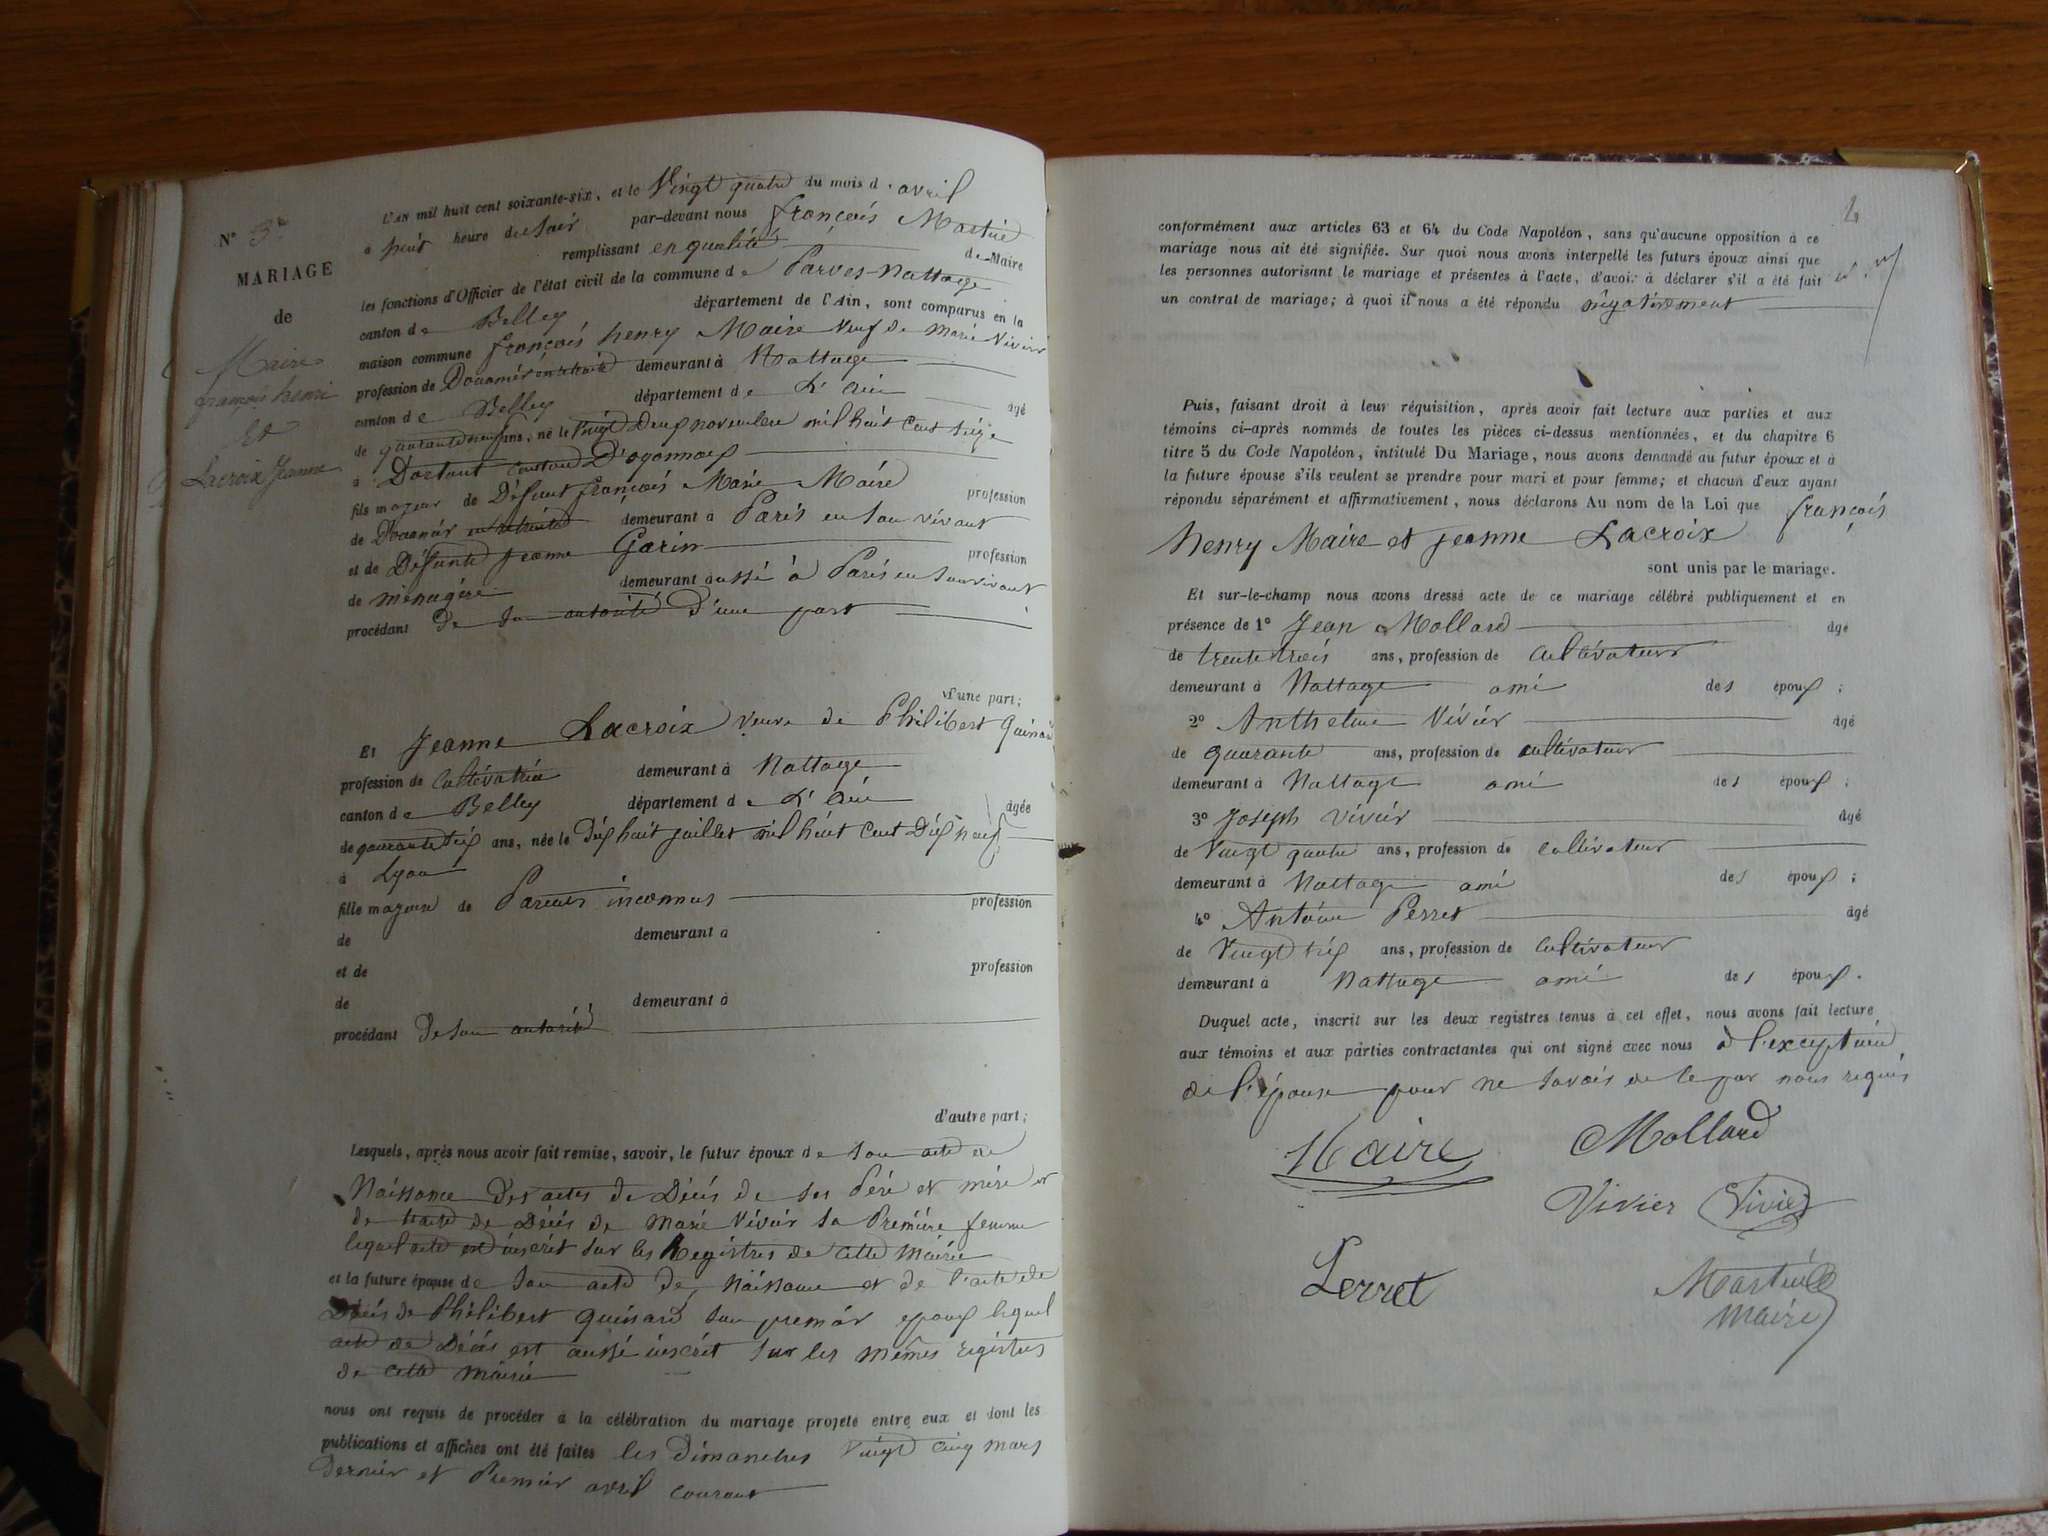 L'AN mil huit cent soixante-six, et le Vingt quatre du mois d'avril
à huit heure du soir par-devant nous françois Martin
remplissant en qualité de Maire
les fonctions d'Officier de l'état civil de la commune de Parves-Nattage
canton de Belley département de l'Ain, sont comparus en la
maison commune françois henry Maire veuf de Marie Vivier
profession de Douanier en retraite demeurant à Nattage
canton de Belley département de L'Ain âgé
de quarante neuf ans, né le Vingt Deux novembre mil huit Cent seize
à Dortant canton D'oyonnax
fils majeur de Défunt françois Marie Maire profession
de Douanier en retraite demeurant à Paris en son vivant
et de Défunte Jeanne Garin profession
de menagère demeurant aussi à Paris en son vivant
procédant de son autorité D'une part
N° 3
MARIAGE
de
Maire
françois henri
Et
Lacroix Jeanne
d'une part;
Et Jeanne Lacroix veuve de Philibert Guinard
profession de Cultivatrice demeurant à Nattage
canton de Belley département de L'Ain âgée
de quarante six ans, née le Dix huit juillet mil huit Cent Dix neuf
à Lyon
fille majeure de Parents inconnus profession
de demeurant à
et de profession
de demeurant à
procédant de son autorité
d'autre part;
Lesquels, après nous avoir fait remise, savoir, le futur époux de son acte de
Naissance des actes de Décès de ses Père et mère et
de l'acte de Décès de Marie Vivier sa Première femme
lequel acte est inscrit sur les Registres de cette Mairie
et la future épouse de son acte de Naissance et de l'acte de
Décès de Philibert Guinard son premier epoux lequel
acte de Décès est aussi inscrit sur les mêmes registres
de cette mairie
nous ont requis de procéder à la célébration du mariage projeté entre eux et dont les
publications et affiches ont été faites les Dimanches Vingt cinq mars
Dernier et Premier avril courant
4
conformément aux articles 63 et 64 du Code Napoléon, sans qu'aucune opposition à ce
mariage nous ait été signifiée. Sur quoi nous avons interpellé les futurs époux ainsi que
les personnes autorisant le mariage et présentes à l'acte, d'avoir à déclarer s'il a été fait
un contrat de mariage; à quoi il nous a été répondu négativement
Puis, faisant droit à leur réquisition, après avoir fait lecture aux parties et aux
témoins ci-après nommés de toutes les pièces ci-dessus mentionnées, et du chapitre 6
titre 5 du Code Napoléon, intitulé Du Mariage, nous avons demandé au futur époux et à
la future épouse s'ils veulent se prendre pour mari et pour femme; et chacun d'eux ayant
répondu séparément et affirmativement, nous déclarons Au nom de la Loi que françois
henry Maire et jeanne Lacroix
sont unis par le mariage.
Et sur-le-champ nous avons dressé acte de ce mariage célébré publiquement et en
présence de 1° Jean Mollard âgé
de trente trois ans, profession de cultivateur
demeurant à Nattage ami des époux;
2° Anthelme Vivier âgé
de quarante ans, profession de cultivateur
demeurant à Nattage ami des époux;
3° Joseph Vivier âgé
de Vingt quatre ans, profession de cultivateur
demeurant à Nattage ami des époux;
4° Antoine Perret âgé
de Vingt six ans, profession de cultivateur
demeurant à Nattage ami des époux.
Duquel acte, inscrit sur les deux registres tenus à cet effet, nous avons fait lecture
aux témoins et aux parties contractantes qui ont signé avec nous à l'exception
de l'épouse pour ne savoir de ce par nous requis
Maire Mollard
Vivier Vivier
Perret Martin
Maire